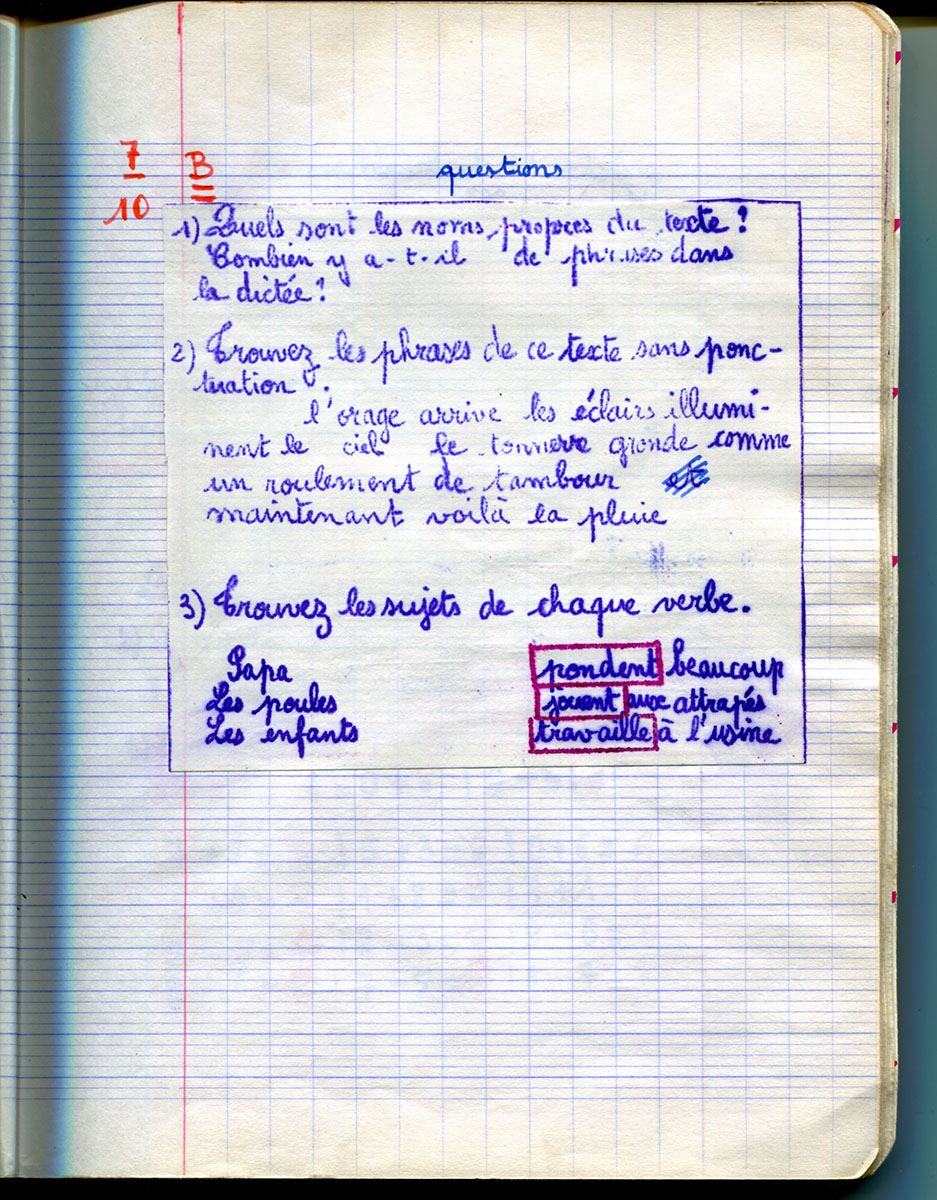 7
10
B
questions
1) Quels sont les noms propres du texte ?
Combien y a-t-il de phrases dans
la dictée ?
2) Trouvez les phrases de ce texte sans ponc-
tuation :
l'orage arrive les éclairs illumi-
nent le ciel le tonnerre gronde comme
un roulement de tambour et
maintenant voilà la pluie
3) Trouvez les sujets de chaque verbe.
Papa pondent beaucoup
Les poules jouent aux attrapés
Les enfants travaille à l'usine